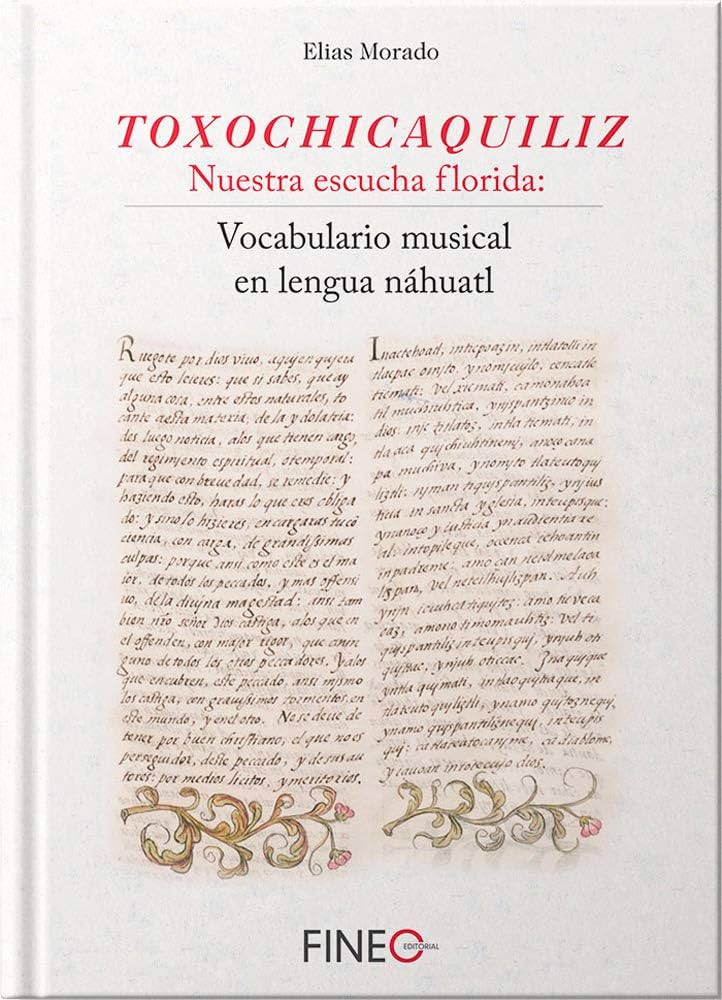 Elias Morado
TOXOCHICAQUILIZ
Nuestra escucha florida:
Vocabulario musical
en lengua náhuatl
Ruegote por dios vivo, aquien quiera
que esto leieres: que si sabes, que ay
alguna cosa, entre estos naturales, to
cante aesta materia, de la ydolatria:
des luego noticia, alos que tienen cargo,
del regimiento espiritual, otemporal:
para que con brevedad, se remedie: y
haziendo esto, haras lo que eres obliga
do: y sino lo hizieres, encargaras tu cō
ciencia, con carga, de grandissimas
culpas: porque ansi como este es el ma
ior, de todos los peccados, y mas offensi
uo, de la diuina magestad: ansi tam
bien nr̄o señor dios castiga, alos que en
el offenden, con maior rigor, que anin
guno de todos los otros peccadores. Y alos
que encubren, este peccado, ansi mismo
los castiga, con grauissimos tormentos, en
este mundo, y en el otro. No se deue de
tener por buen christiano, el que no es
perseguidor, deste peccado, y de sus au
tores: por medios licitos, y meritorios.
Inactehoatl, inticpoazin, intlatolli in
tlacpac omjto, ynomjcujlo, cencatle
ticmati: vel xicmati, camonahoa
til muchiuhtica, ynjspantzinco in
dios:
intla ticmati, in
tla aca quichiuhtinemj, anoço cana
pa muchiva, ynomjto tlateutoquj
liztli: njman tiquispantiliz, ynjus
ticia in sancta yglesia, inteupisque:
ynanoço yn justicia yn audientia re
al:
amo can
vel
Auh
ynjn
amo
vel ti
quispantiliz inteupisquj, ynjuh otí
quittac, ynjuh oticcac. Ina quisque
yntla quimati, intlaoquittaque, in
tlateutoquiliztli, ynamo quitoznequj,
ynamo quispantiliznequj, inteupis
quj: ca tlateutocanjme, ca diablome,
y
dios.
FINEO
EDITORIAL